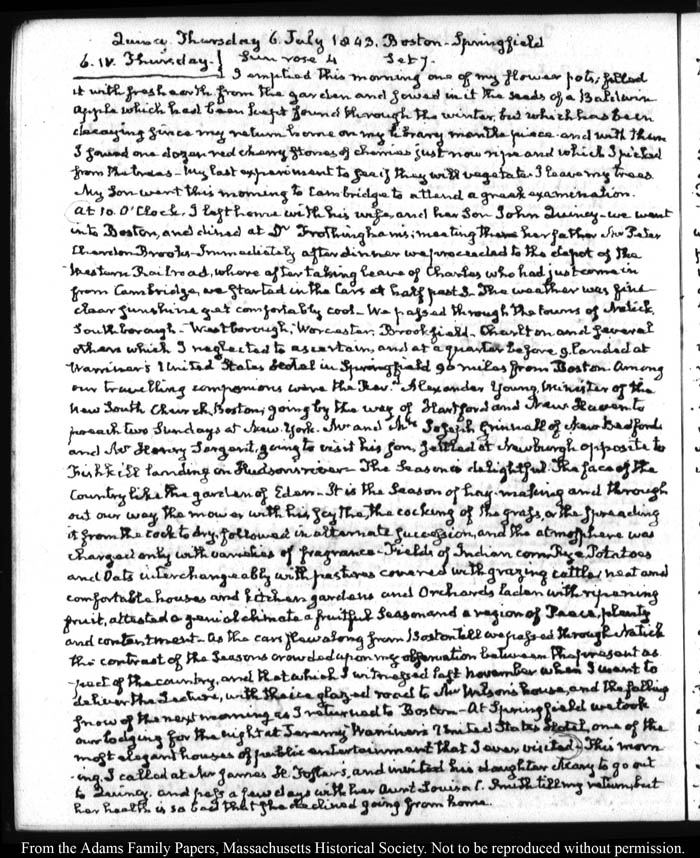 Quincy Thursday 6. July 1843. Boston-Springfield
6. IV. Thursday. Sun rose 4 Set 7.
I emptied this morning one of my flower pots, filled
it with fresh earth from the garden and sowed in it the seeds of a Baldwin
apple which had been kept sound through the winter, but which has been
decaying since my return home on my library mantle piece. and with them
I sowed one dozen red cherry stones of cherries just now ripe and which I picked
from the trees - My last experiment to see if they will vegetate. I leave my trees.
My Son went this morning to Cambridge to attend a greek examination.
At 10. O'Clock. I left home with his wife, and her Son John Quincy - we went
into Boston, and dined at Dr Frothingham's; meeting there her father Mr Peter
Chardon Brooks - Immediately after dinner we proceeded to the depot of the
Western Railroad, where after taking leave of Charles who had just come in
from Cambridge, we started in the Cars at half past 3 - The weather was fine
clear sunshine yet comfortably cool - We passed through the towns of Natick,
Southborough - Westborough, Worcester, Brookfield - Charlton and several
others which I neglected to ascertain, and at a quarter before 9. landed at
Warriner's United States Hotel in Springfield 90 miles from Boston. Among
our travelling companions were the Revd Alexander Young, Minister of the
New South Church, Boston, going by the way of Hartford and New Haven to
preach two Sundays at New York. Mr and Mrs Joseph Grinnell of New Bedford
and Mr Henry Sargent, going to visit his son, settled at Newburgh opposite to
Fishkill landing on Hudsons river - The Season is delightful. The face of the
Country like the garden of Eden - It is the Season of hay-making and through
out our way the mower with his scythe, the cocking of the grass, or the spreading
it from the cock to dry, followed in alternate succession, and the atmosphere was
charged only with varieties of fragrance - Fields of Indian corn, Rye, Potatoes
and Oats interchangeably with pastures covered with grazing cattle, neat and
comfortable houses and kitchen gardens and Orchards laden with ripening
fruit, attested a genial climate a fruitful Season and a region of Peace, plenty
and contentment - As the cars flew along from Boston till we passed through Natick
the contrast of the Seasons crowded upon my observation between the present as
-pect of the country, and that which I witnessed last November when I went to
deliver the Lecture, with the ice glazed road to Mr Wilson's house, and the falling
snow of the next morning as I returned to Boston - At Springfield we took
our lodging for the night at Jeremy Warriner's United States Hotel, one of the
most elegant houses of public entertainment that I ever visited. This morn
-ing. I called at Mr James H. Foster's, and invited his daughter Mary to go out
to Quincy. and pass a few days with her Aunt Louisa C. Smith till my return, but
her health is so bad that she declined going from home.
From the Adams Family Papers, Massachusetts Historical Society. Not to be reproduced without permission.